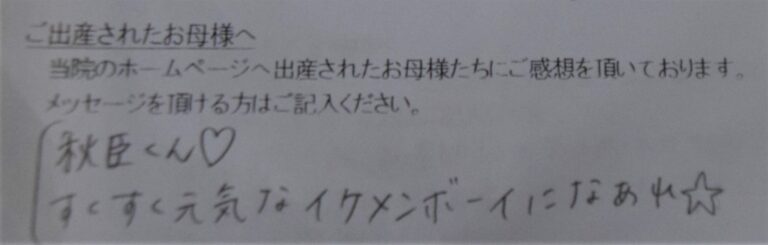 ご出産されたお母様へ
当院のホームページへ出産されたお母様たちにご感想を頂いております。
メッセージを頂ける方はご記入ください。
秋臣くん♡
すくすく元気なイケメンボーイになあれ☆